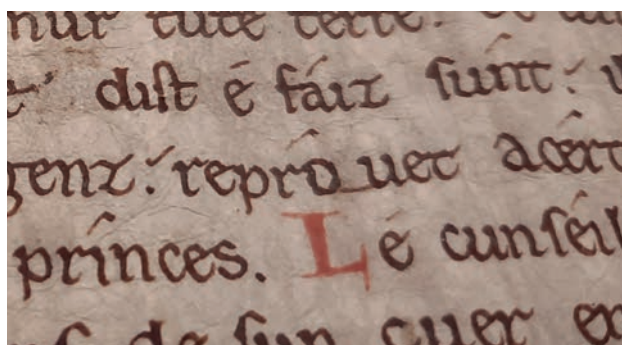 tute terre.
dist é fáiz súnt:
genz: repróvet acért
prínces. Lé cunséil
de sun cuer